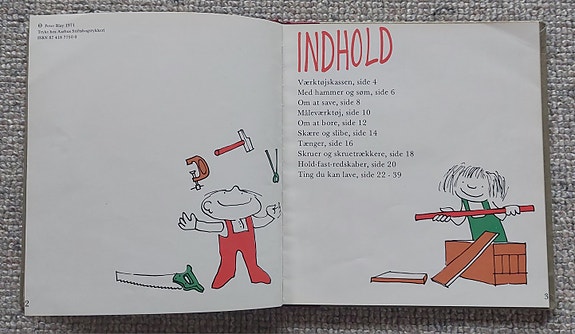 © Peter Bay 1971
Trykt hos Aarhus Stiftsbogtrykkeri
ISBN 87 418
INDHOLD
Værktøjskassen, side 4
Med hammer og søm, side 6
Om at save, side 8
Måleværktøj, side 10
Om at bore, side 12
Skære og slibe, side 14
Tænger, side 16
Skruer og skruetrækkere, side 18
Hold-fast-redskaber, side 20
Ting du kan lave, side 22 - 39
2
3